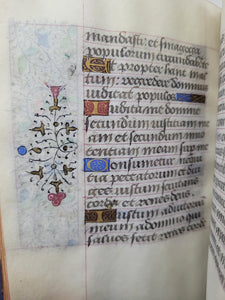 mandasti: et sinagoga
populorum circundabit te
Et propter hanc in al
tum: regredere dominus
iudicat populos
Iudica me domine
secundum iustitiam me
am et secundum inno
centiam meam super me
Consumetur nequi
tia peccatorum et diri
ges iustum scrutans
corda et renes deus
Iustum adiutorium
meum a domino qui
saluos facit rectos corde